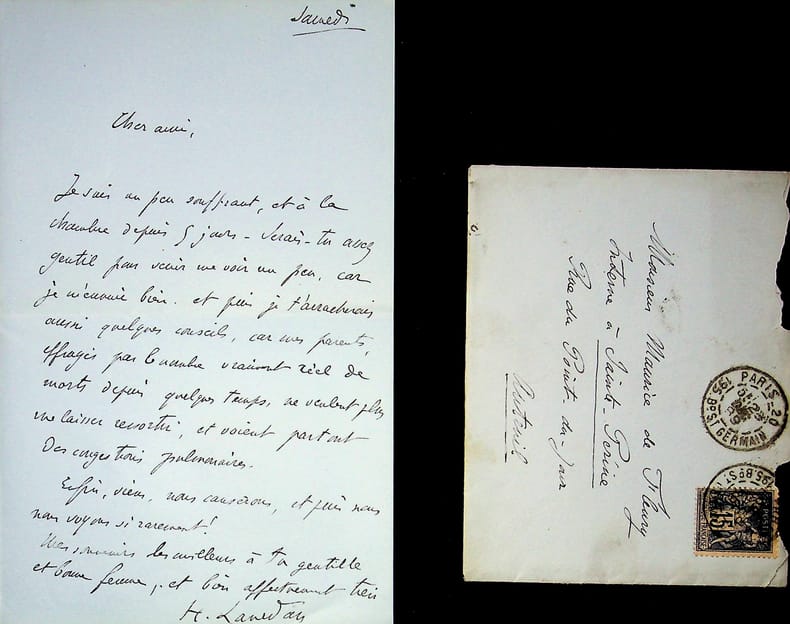 Samedi
Cher ami,
Je suis un peu souffrant, et à la
chambre depuis 5 jours - Serais-tu assez
gentil pour venir me voir un peu, car
je m'ennuie bien. et puis je t'arracherais
aussi quelques conseils, car mes parents,
effrayés par le nombre vraiment réel de
morts depuis quelques temps, ne veulent plus
me laisser ressortir, et voient partout
des congestions pulmonaires.
Enfin, viens, nous causerons, et puis nous
nous voyons si rarement!
Mes souvenirs les meilleurs à ta gentille
et bonne femme, et bien affectueusement tien
H. Lavedan
Monsieur Maurice de Fleury
Interne à Sainte Perine
Rue du Point du Jour
Auteuil
PARIS 20
195 Bd ST GERMAIN
15